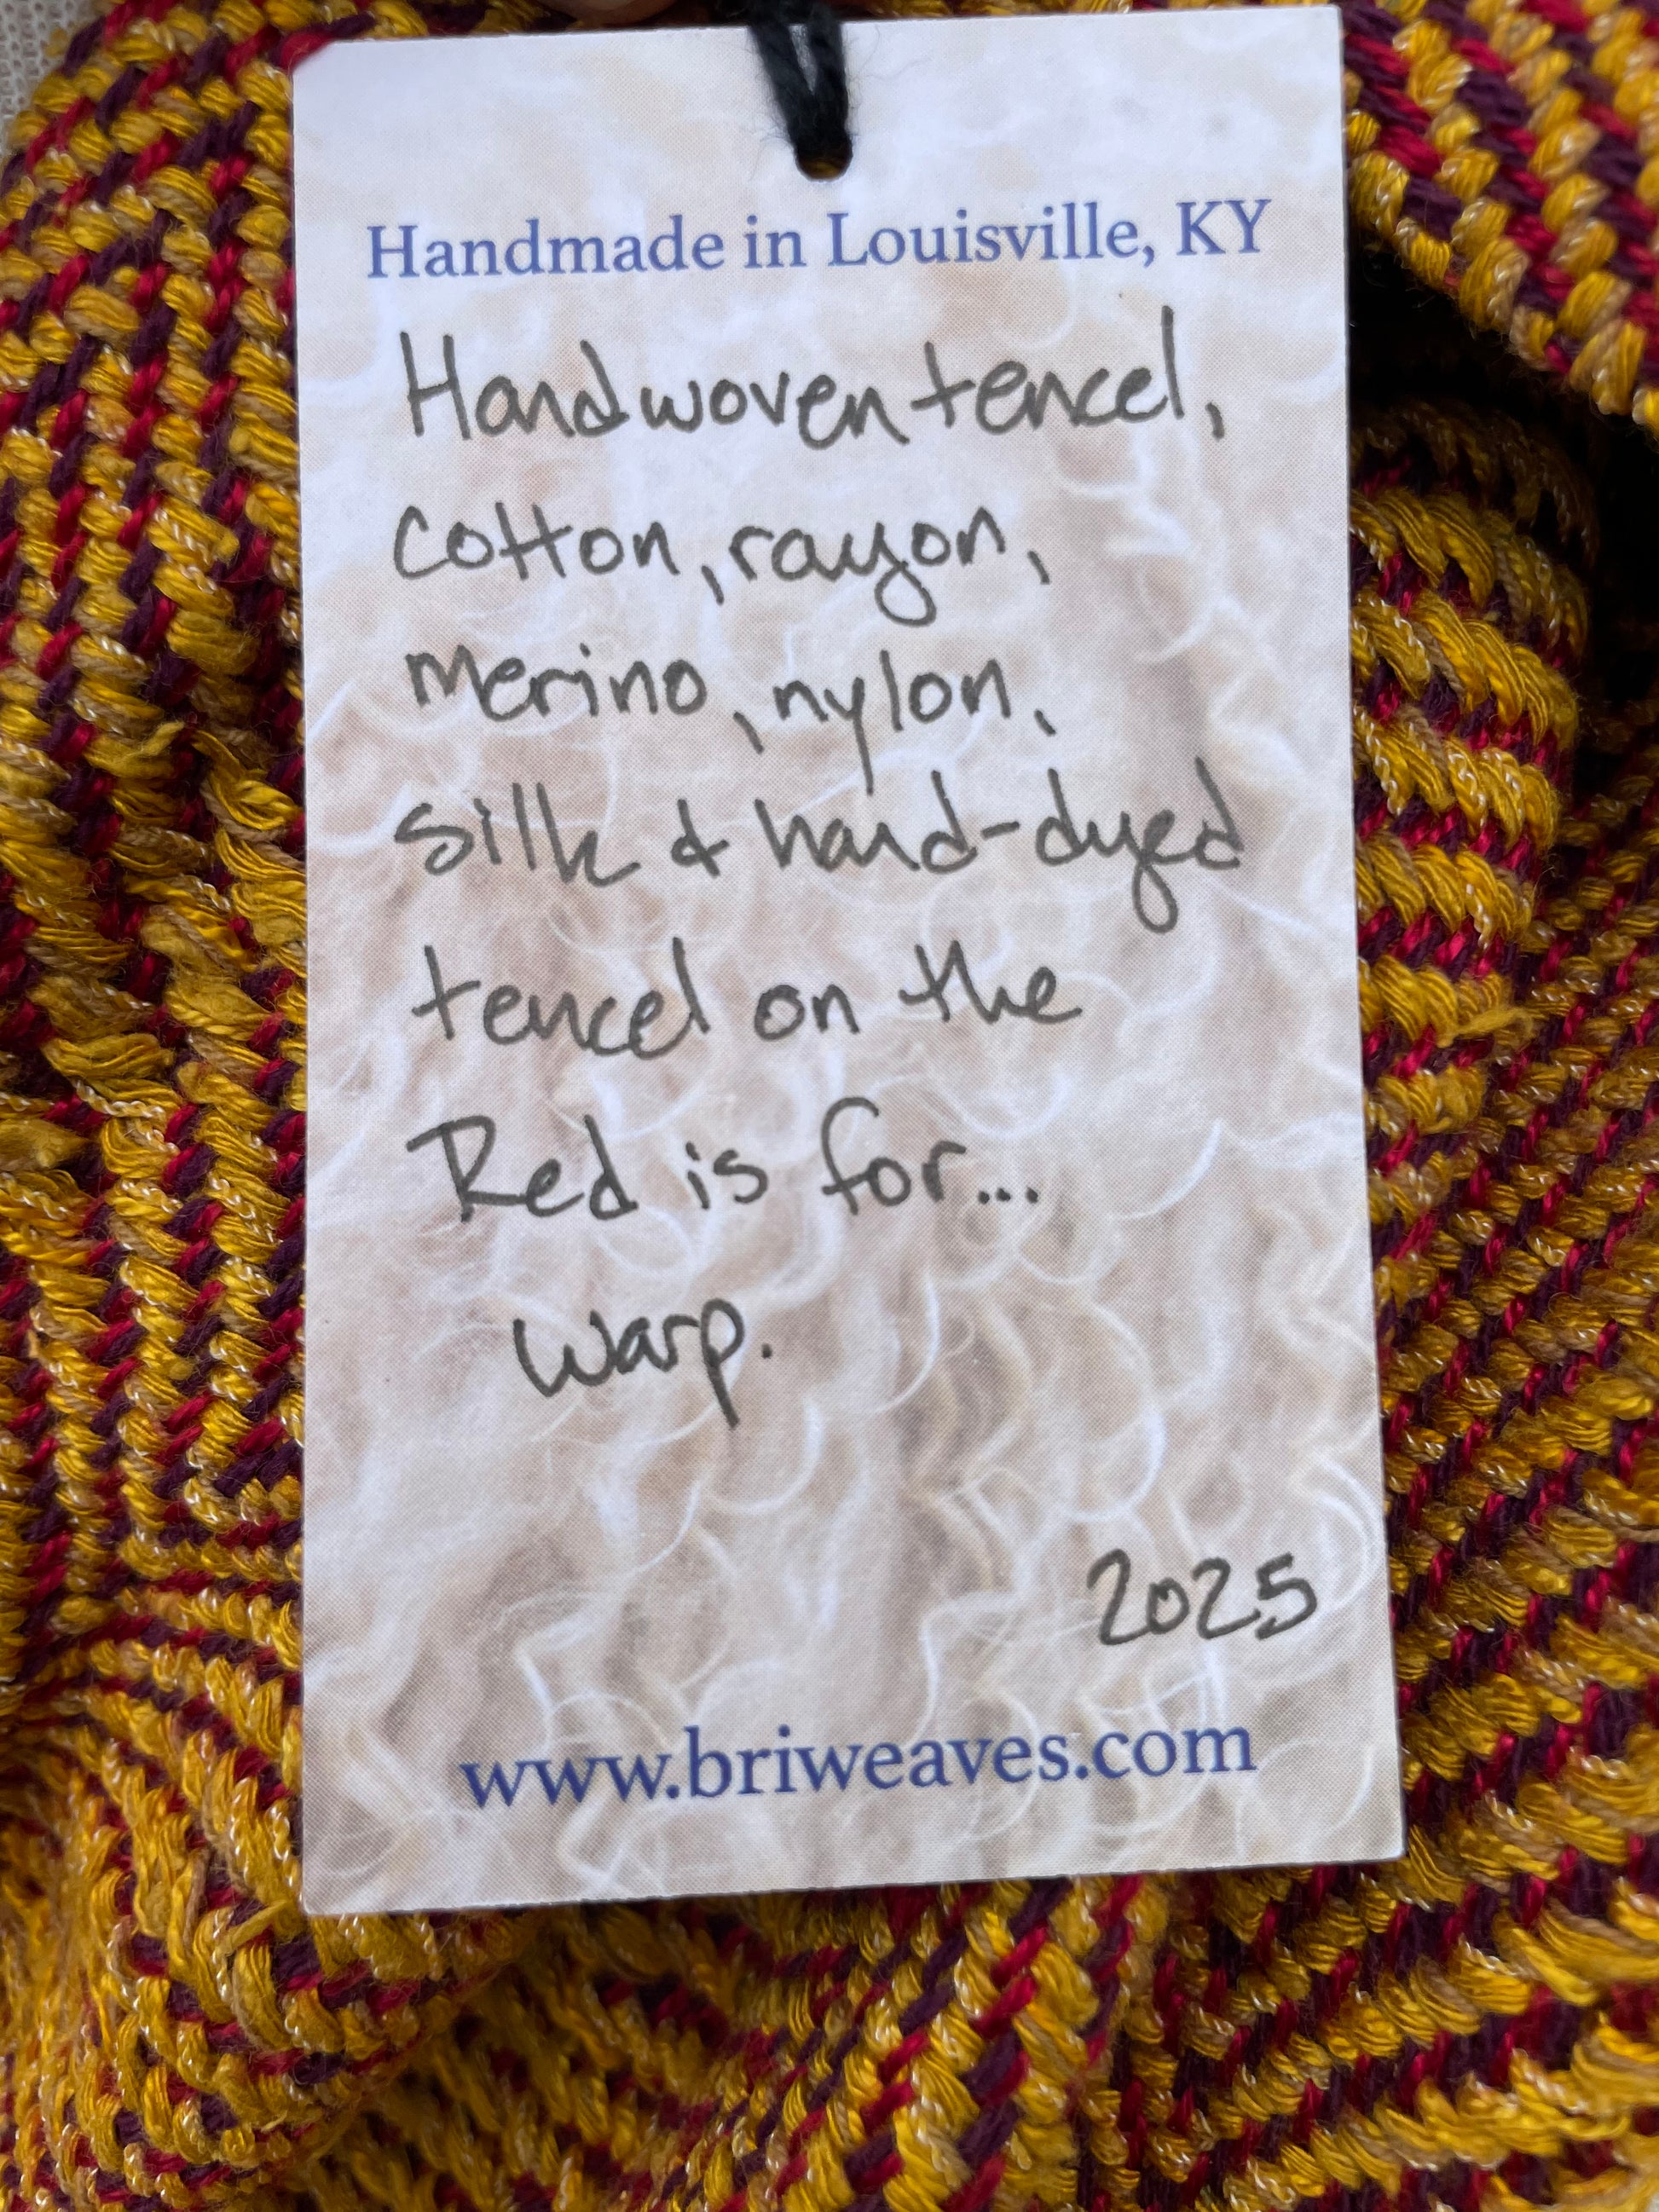 Handmade in Louisville, KY
Handwoven tencel,
cotton, rayon,
merino, nylon,
silk & hand-dyed
tencel on the
Red is for...
warp.
2025
www.briweaves.com